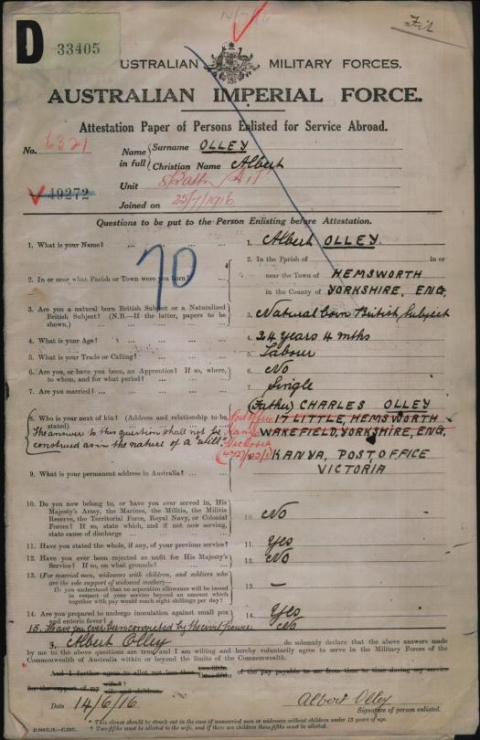 D
33405
Fit
USTRALIAN MILITARY FORCES.
AUSTRALIAN IMPERIAL FORCE.
Attestation Paper of Persons Enlisted for Service Abroad.
No. 6321
Name in full
Surname OLLEY
Christian Name Albert
Unit
Joined on 25/7/1916
19272
Questions to be put to the Person Enlisting before Attestation.
70
1. What is your Name? 1. Albert OLLEY.
2. In or near what Parish or Town were you born? 2. In the Parish of in or
near the Town of HEMSWORTH
in the County of YORKSHIRE, ENG.
3. Are you a natural born British Subject or a Naturalized British Subject? (N.B.—If the latter, papers to be shown.) 3. Natural born British Subject
4. What is your Age? 4. 24 years 4 mths
5. What is your Trade or Calling? 5. Labour
6. Are you, or have you been, an Apprentice? If so, where, to whom, and for what period? 6. No
7. Are you married? 7. Single
8. Who is your next of kin? (Address and relationship to be stated) (Father) CHARLES OLLEY
The answer to this question shall not be construed as in the nature of a "will".
Post Office
17 LITTLE, HEMSWORTH
WAKEFIELD, YORKSHIRE, ENG.
9. What is your permanent address in Australia? KANYA, POST OFFICE
VICTORIA
10. Do you now belong to, or have you ever served in, His Majesty's Army, the Marines, the Militia, the Militia Reserve, the Territorial Force, Royal Navy, or Colonial Forces? If so, state which, and if not now serving, state cause of discharge 10. No
11. Have you stated the whole, if any, of your previous service? 11. Yes
12. Have you ever been rejected as unfit for His Majesty's Service? If so, on what grounds? 12. No
13. (For married men, widowers with children, and soldiers who are the sole support of widowed mother)— 13. —
Do you understand that no separation allowance will be issued in respect of your service beyond an amount which together with pay would reach eight shillings per day?
14. Are you prepared to undergo inoculation against small pox and enteric fever? 14. Yes
15. Have you ever been convicted by the civil power No
I, Albert Olley do solemnly declare that the above answers made
by me to the above questions are true, and I am willing and hereby voluntarily agree to serve in the Military Forces of the
Commonwealth of Australia within or beyond the limits of the Commonwealth.
Date 14/6/16 Albert Olley
Signature of person enlisted.
* This clause should be struck out in the case of unmarried men or widowers without children under 18 years of age.
† Two-fifths must be allotted to the wife, and if there are children three-fifths must be allotted.